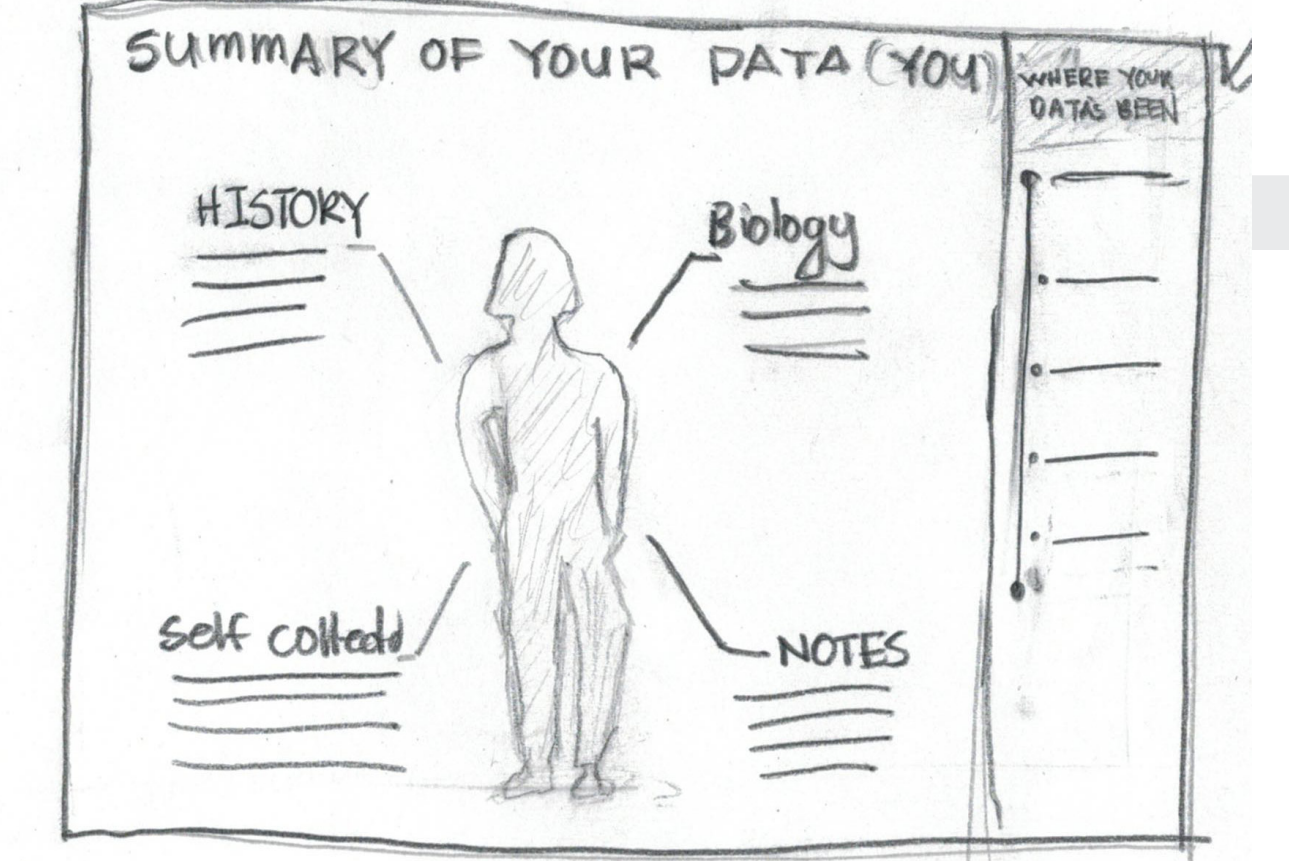 SUMMARY OF YOUR DATA (YOU)
WHERE YOUR
DATA'S BEEN
HISTORY
Biology
self collected
NOTES